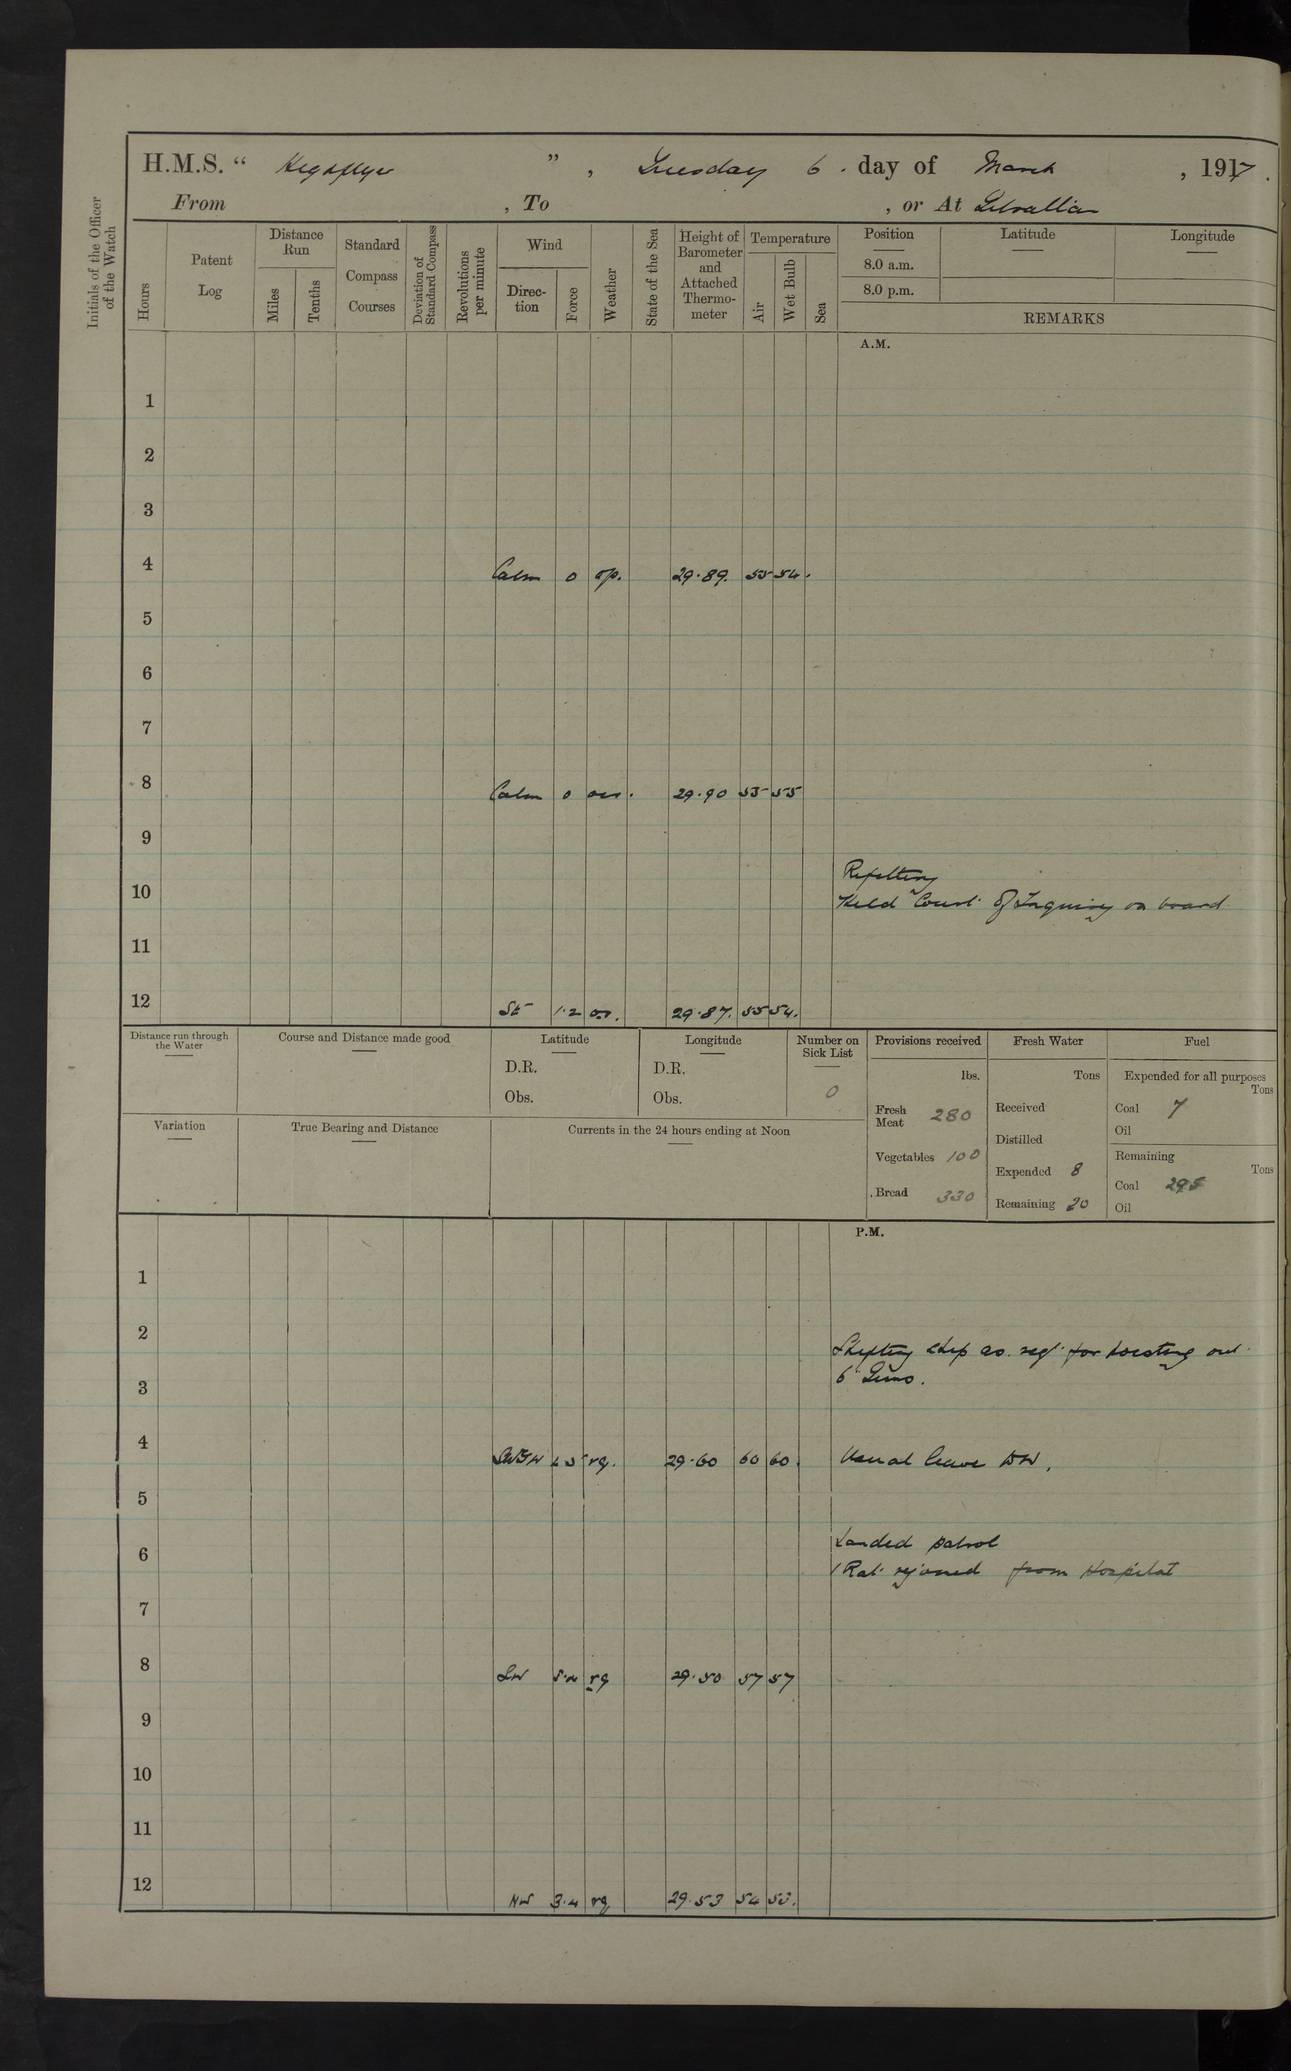 H.M.S. “ Highflyer ”, Tuesday 6. day of March, 1917.
From , To , or At Gibraltar
Initials of the Officer of the Watch
Hours
Patent Log
Distance Run
Miles
Tenths
Standard Compass Courses
Deviation of Standard Compass
Revolutions per minute
Wind
Direc-tion
Force
Weather
State of the Sea
Height of Barometer and Attached Thermo-meter
Temperature
Air
Wet Bulb
Sea
Position
8.0 a.m.
8.0 p.m.
Latitude
Longitude
REMARKS
A.M.
1
2
3
4 Calm 0 op. 29.89. 55 54.
5
6
7
8 Calm 0 29.90 55 55
9
Refitting
10 Held Court of Inquiry on board
11
12 SE 1.2 29.87. 55 54.
Distance run through the Water
Course and Distance made good
Latitude
D.R.
Obs.
Longitude
D.R.
Obs.
Number on Sick List
0
Provisions received
lbs.
Fresh Meat 280
Vegetables 100
Bread 330
Fresh Water
Tons
Received
Distilled
Expended 8
Remaining 20
Fuel
Expended for all purposes
Tons
Coal 7
Oil
Remaining
Tons
Coal 295
Oil
Variation
True Bearing and Distance
Currents in the 24 hours ending at Noon
P.M.
1
2 Shifting ship as req. for hoisting out
3 6" Guns.
4 rq. 29.60 60 60. Usual leave
5
Landed patrol
6 1 Rat. rejoined from Hospital
7
8 SW 5.4 rq 29.50 57 57
9
10
11
12 NW 3.4 rq 29.53 54 53.